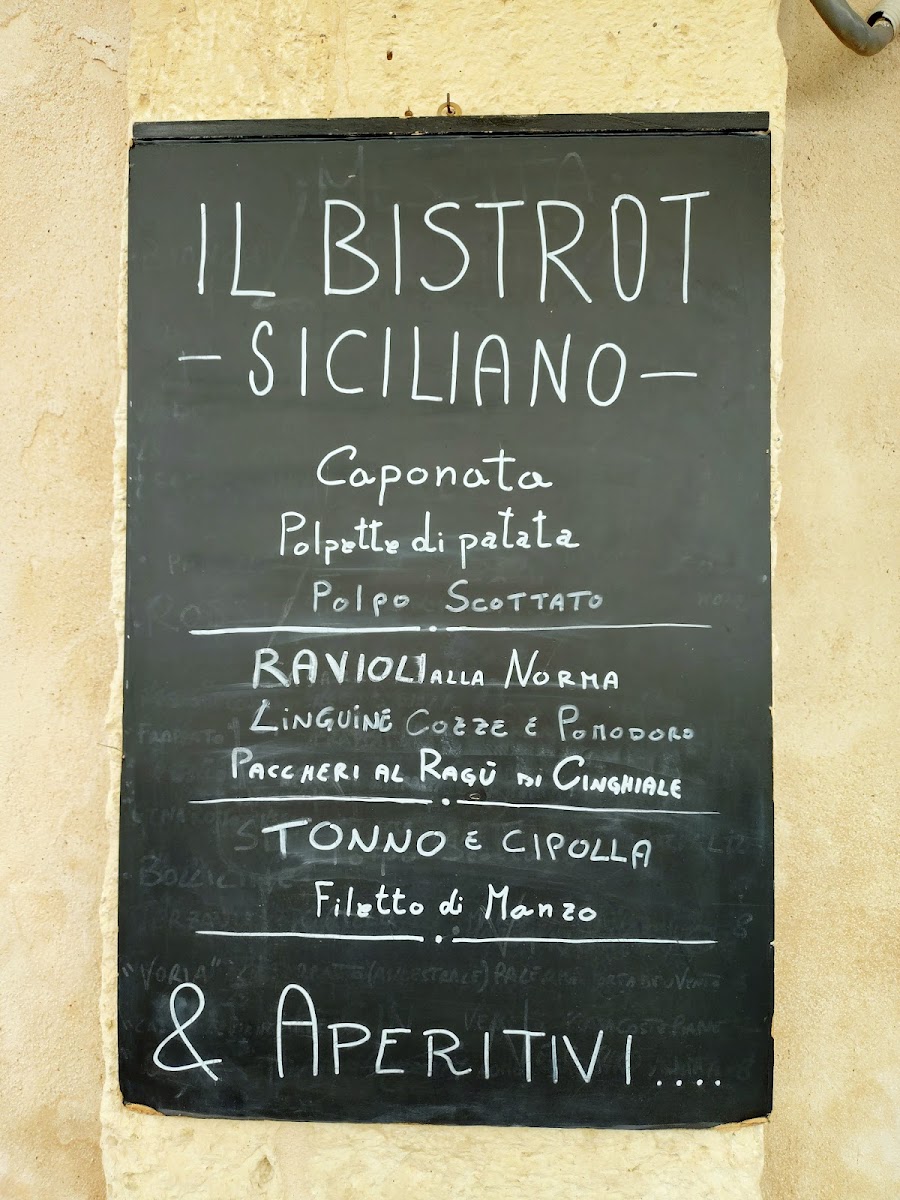 IL BISTROT
- SICILIANO -
Caponata
Polpette di patata
Polpo Scottato
RAVIOLI ALLA NORMA
LINGUINE COZZE E POMODORO
PACCHERI AL RAGÙ DI CINGHIALE
TONNO E CIPOLLA
Filetto di Manzo
"VORIA"
& APERITIVI....